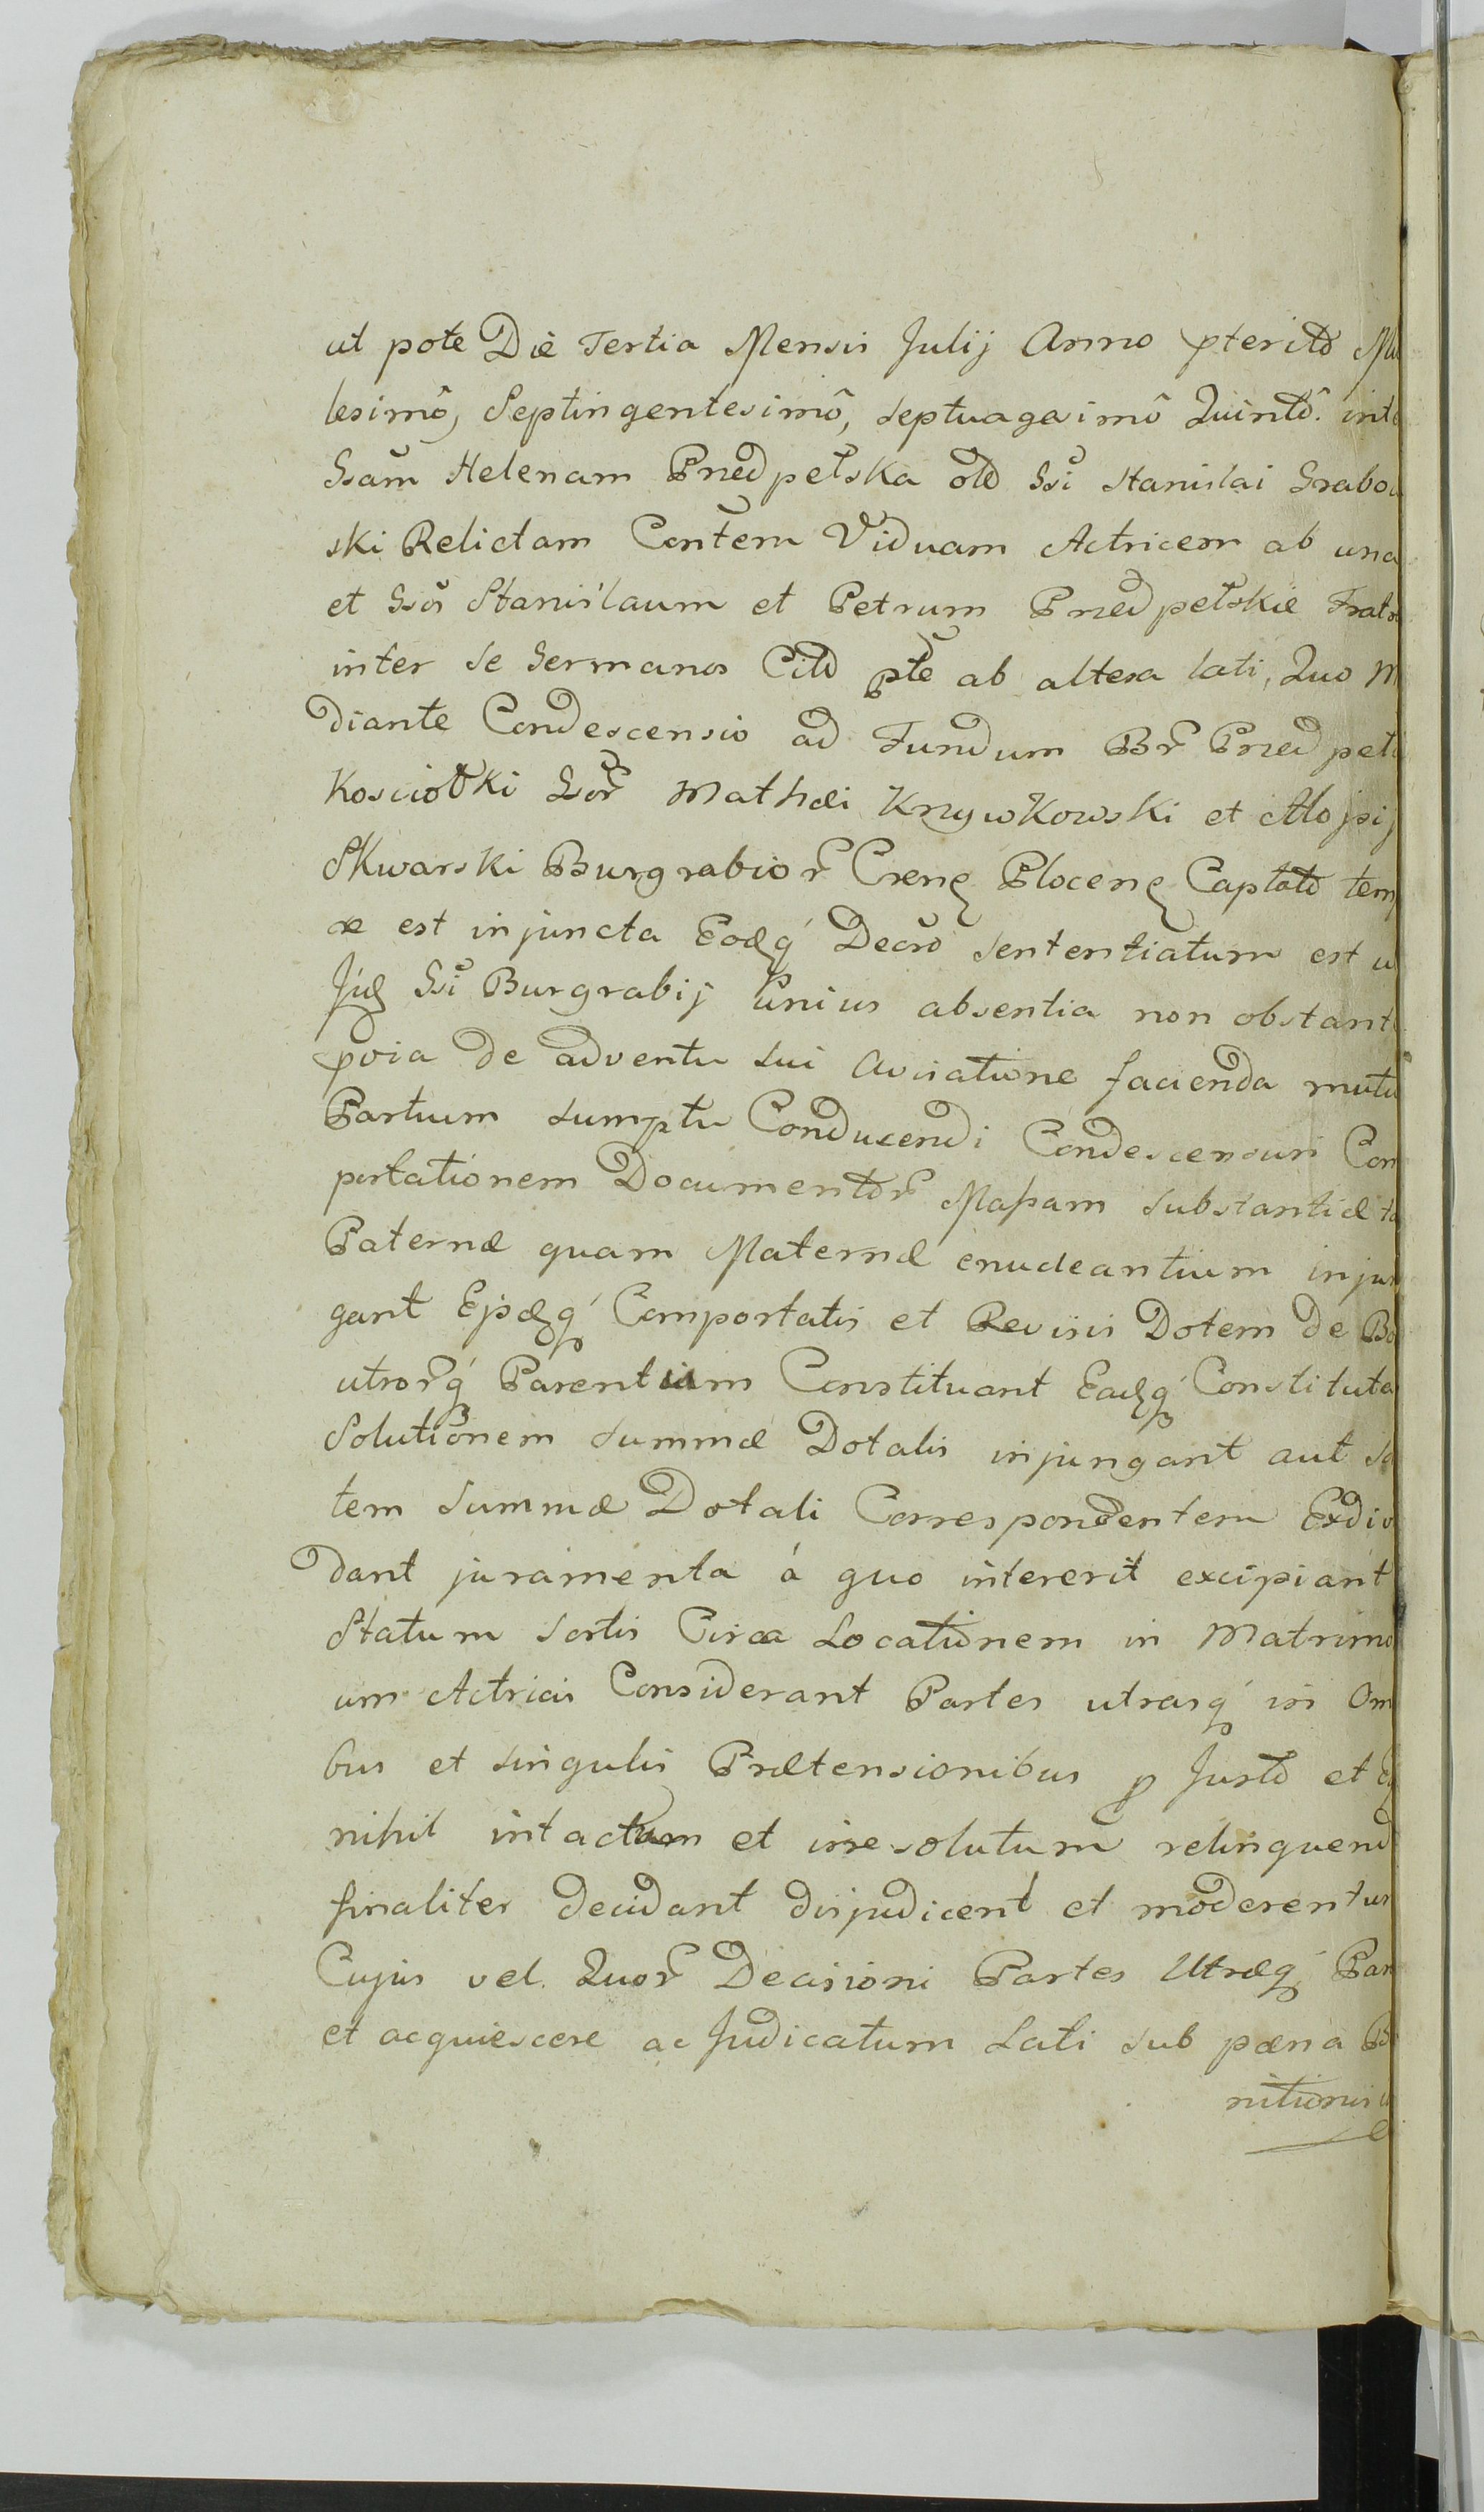 ut pote Die Tertia Mensis Julij Anno pterito Mil
lesimô, Septingentesimô, septuagesimô Quintô. inte
Gsam Helenam Przedpełska olẽ Gsi Stanislai Grabow
ski Relictam Contem Viduam Actricem ab una
et Gsos Stanislaum et Petrum Przedpełskie Fratr
inter se Germanos Cito pte ab altera lati, Quo M
diante Condescensio ad Fundum Br Przedpeł
Kosciołki Gsor Mathæi Krzywkowski et Alojsij
Skwarski Burgrabior Crens Plocens Captato temp
æ est injuncta Eodq́ Decro sententiatum est u
Jud Gsi Burgrabij unius absentia non obstante
pvia de adventu sui Avisatione facienda mutu
Partium sumptu Conducendi Condescensuri Com
portationem Documentor Massam substantiæ ta
Paternæ quam Maternæ enucleantium injun
gant Ejsdq́ Comportatis et Revisis Dotem de Bo
utrorq́ Parentium Constituant Eadq́ Constituta
Solutionem summæ Dotalis injungant aut so
tem summæ Dotali Correspondentem Exdivi
dant juramenta á quo intererit excipiant
Statum sortis Circa Locationem in Matrimo
um Actricis Considerant Partes utrasq́ in Om
bus et singulis Prætensionibus p Justo et
nihil intactum et irresolutum relinquend
finaliter decidant disjudicent et moderentur
Cujus vel Quor Decisioni Partes Utræq́ Par
et acquiescere ac Judicatum Lati sub pæna
nitionis